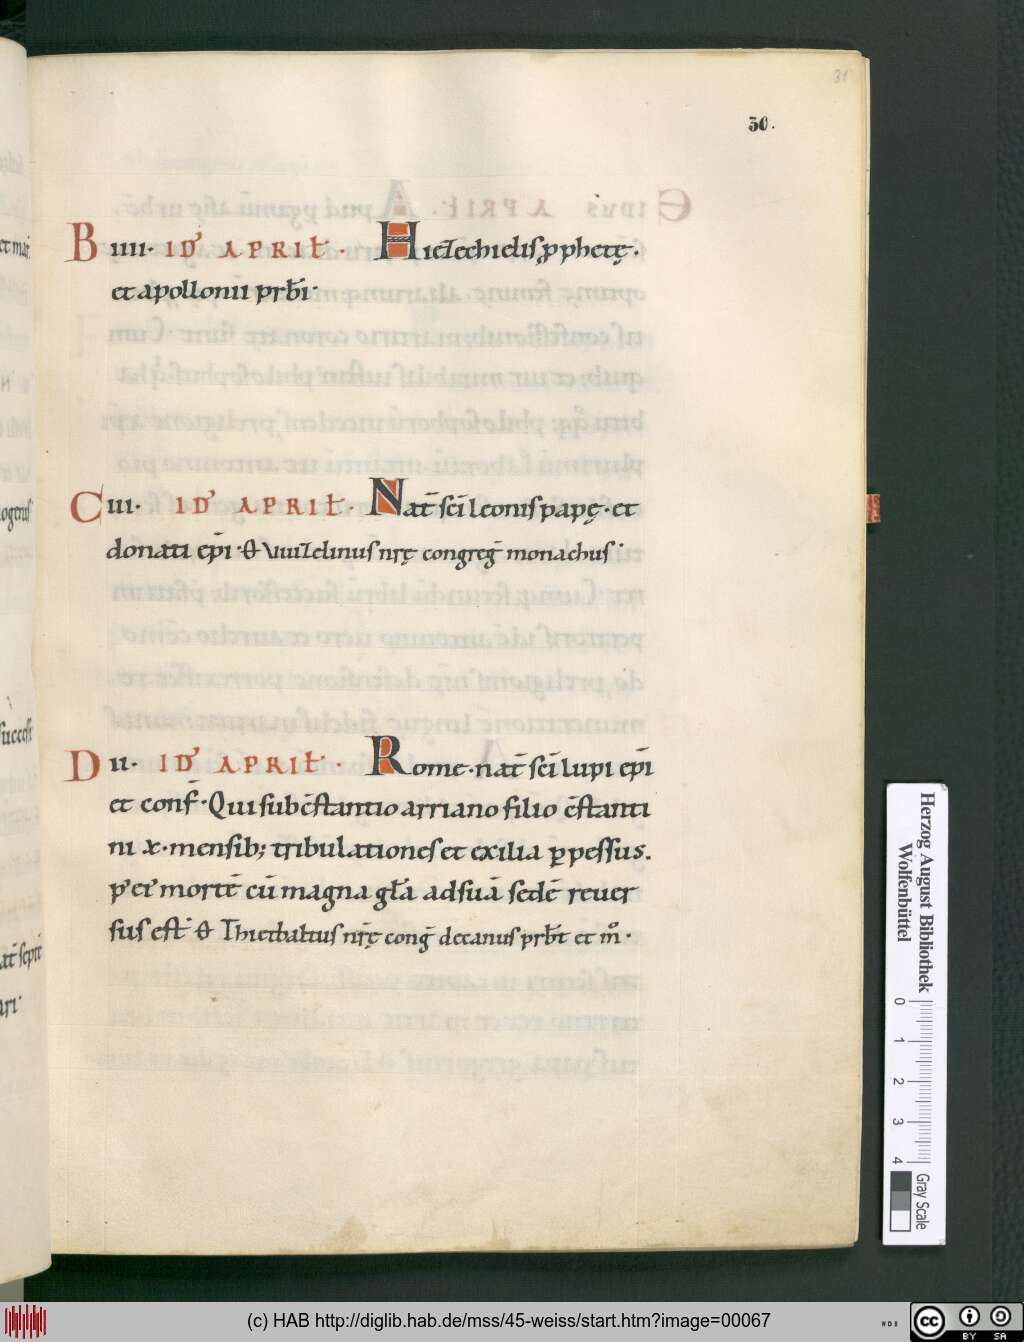 31
30.
B IIII· ID' APRIŁ· HieZechielis ꝓphetę.
et apollonii prb̄i·
C III· ID' APRIŁ· Nat̄ sc̄i leonis papę· et
donati ep̄i· & VuiZelinus nr̄ę congreg̅ monachus·
D II· ID' APRIŁ· Rome· nat̄ sc̄i lupi ep̄i
et conf̄· Qui sub c̄stantio arriano filio c̄stanti
ni x· mensib; tribulationes et exilia ꝑpessus.
p' ei' mortē cū magna gl̄a ad suā sedē reuer
sus est̄ & Thietbaltus nr̄ę cong̅ decanus prb̄t et m̊·
Herzog August Bibliothek
Wolfenbüttel
0 1 2 3 4
Gray Scale
(c) HAB http://diglib.hab.de/mss/45-weiss/start.htm?image=00067
WDB
cc BY SA